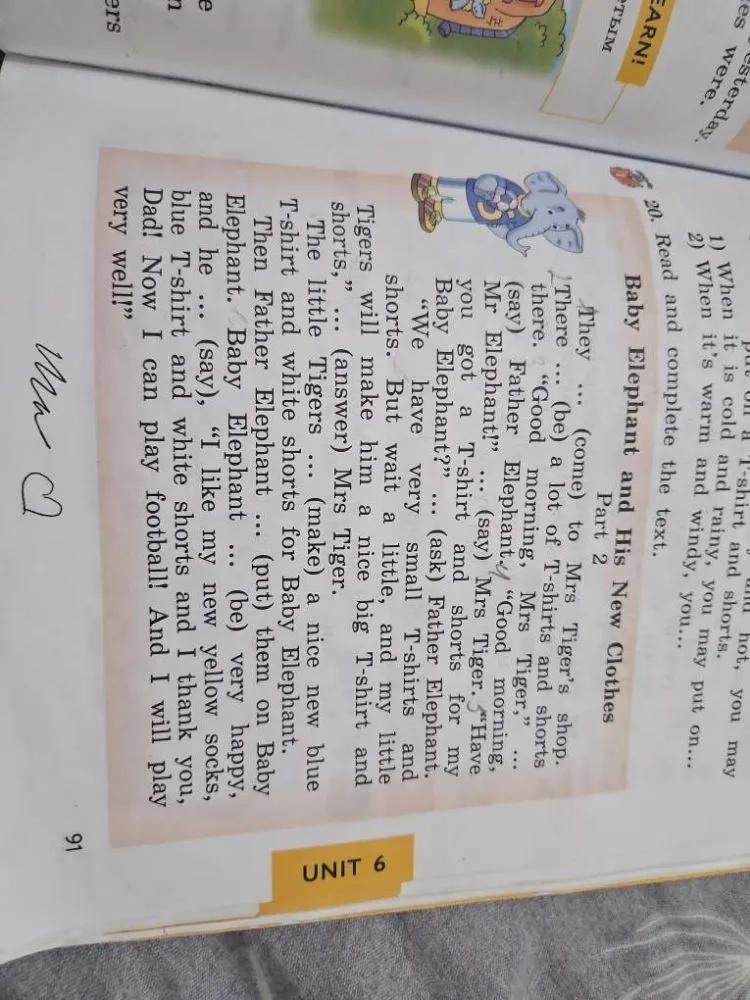 LEARN!
1) When it is cold and rainy, you may
2) When it's warm and windy, you...
T-shirt and shorts.
hot, you may
put on...
yesterday.
were.
20. Read and complete the text.
Baby Elephant and His New Clothes
Part 2
They ... (come) to Mrs Tiger's shop.
There ... (be) a lot of T-shirts and shorts
there. "Good morning, Mrs Tiger," ...
(say) Father Elephant. "Good morning,
Mr Elephant!" ... (say) Mrs Tiger. "Have
you got a T-shirt and shorts for my
Baby Elephant?" ... (ask) Father Elephant.
"We have very small T-shirts and
shorts. But wait a little, and my little
Tigers will make him a nice big T-shirt and
shorts," ... (answer) Mrs Tiger.
The little Tigers ... (make) a nice new blue
T-shirt and white shorts for Baby Elephant.
Then Father Elephant ... (put) them on Baby
Elephant. Baby Elephant ... (be) very happy,
and he ... (say), "I like my new yellow socks,
blue T-shirt and white shorts and I thank you,
Dad! Now I can play football! And I will play
very well!"
UNIT 6
91